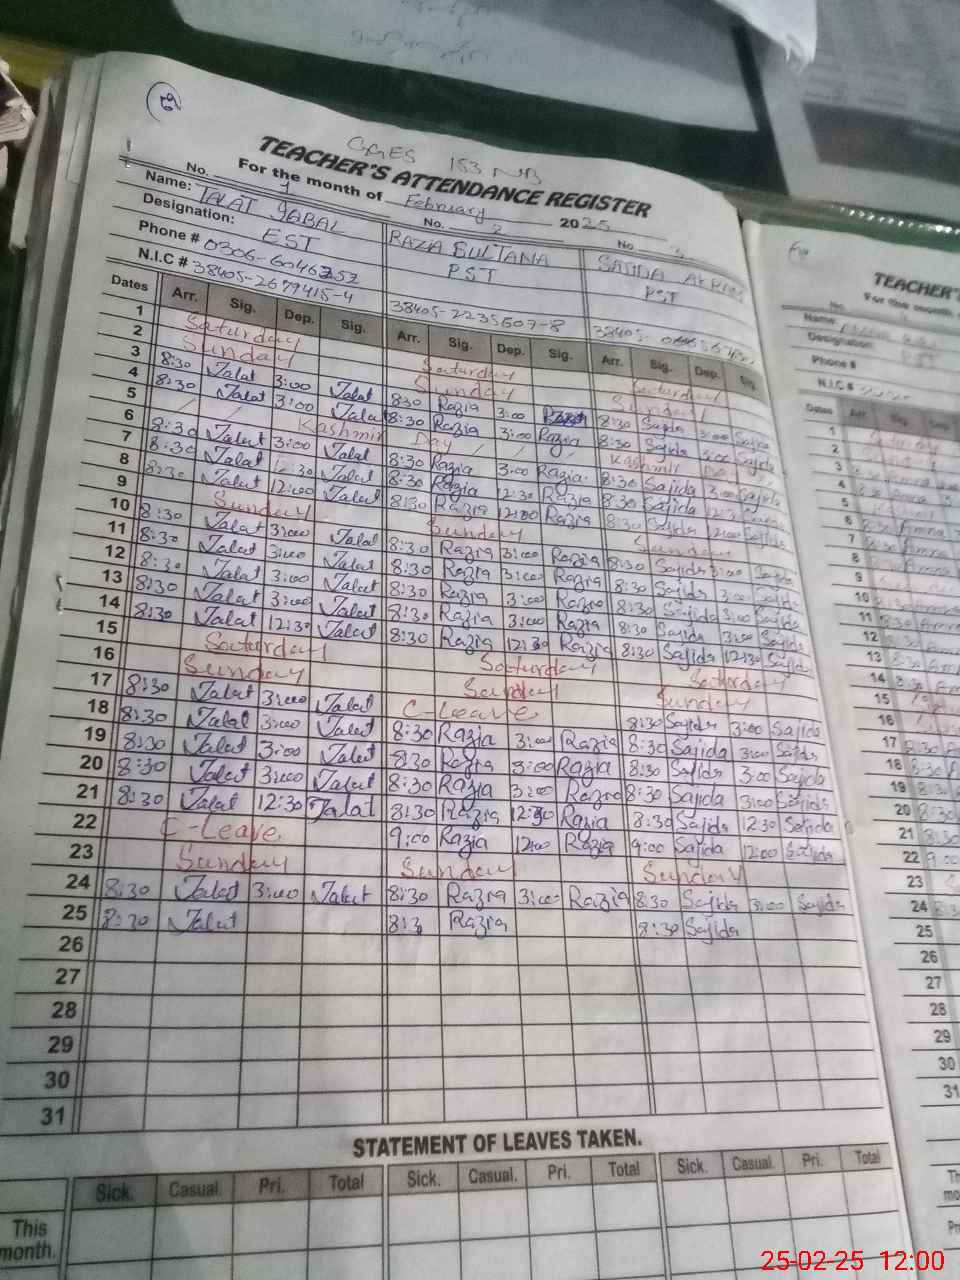 6
GGES 153 NB
TEACHER'S ATTENDANCE REGISTER
For the month of February 2025
No. 1 No. 2 No. 3
Name: TALAT IQBAL RAZIA SULTANA SAJIDA AKRAM
Designation: EST PST PST
Phone # 0306-6046252
N.I.C # 38405-2679415-4 38405-2235607-8 38405-
Dates Arr. Sig. Dep. Sig. Arr. Sig. Dep. Sig. Arr. Sig. Dep. Sig.
1 Saturday Saturday Saturday
2 Sunday Sunday Sunday
3 8:30 Talat 3:00 Talat 8:30 Razia 3:00 Razia 8:30 Sajida 3:00 Sajida
4 8:30 Talat 3:00 Talat 8:30 Razia 3:00 Razia 8:30 Sajida 3:00 Sajida
5 / / Kashmir Day / / / Kashmir Day
6 8:30 Talat 3:00 Talat 8:30 Razia 3:00 Razia 8:30 Sajida 3:00 Sajida
7 8:30 Talat 12:30 Talat 8:30 Razia 12:30 Razia 8:30 Sajida 12:30 Sajida
8 8:30 Talat 12:00 Talat 8:30 Razia 12:00 Razia 8:30 Sajida 12:00 Sajida
9 Sunday Sunday Sunday
10 8:30 Talat 3:00 Talat 8:30 Razia 3:00 Razia 8:30 Sajida 3:00 Sajida
11 8:30 Talat 3:00 Talat 8:30 Razia 3:00 Razia 8:30 Sajida 3:00 Sajida
12 8:30 Talat 3:00 Talat 8:30 Razia 3:00 Razia 8:30 Sajida 3:00 Sajida
13 8:30 Talat 3:00 Talat 8:30 Razia 3:00 Razia 8:30 Sajida 3:00 Sajida
14 8:30 Talat 12:30 Talat 8:30 Razia 12:30 Razia 8:30 Sajida 12:30 Sajida
15 Saturday Saturday Saturday
16 Sunday Sunday Sunday
17 8:30 Talat 3:00 Talat C-Leave 8:30 Sajida 3:00 Sajida
18 8:30 Talat 3:00 Talat 8:30 Razia 3:00 Razia 8:30 Sajida 3:00 Sajida
19 8:30 Talat 3:00 Talat 8:30 Razia 3:00 Razia 8:30 Sajida 3:00 Sajida
20 8:30 Talat 3:00 Talat 8:30 Razia 3:00 Razia 8:30 Sajida 3:00 Sajida
21 8:30 Talat 12:30 Talat 8:30 Razia 12:30 Razia 8:30 Sajida 12:30 Sajida
22 C-Leave 9:00 Razia 12:00 Razia 9:00 Sajida 12:00 Sajida
23 Sunday Sunday Sunday
24 8:30 Talat 3:00 Talat 8:30 Razia 3:00 Razia 8:30 Sajida 3:00 Sajida
25 8:30 Talat 8:3 Razia 8:30 Sajida
26
27
28
29
30
31
STATEMENT OF LEAVES TAKEN.
Sick. Casual. Pri. Total Sick. Casual. Pri. Total Sick. Casual. Pri. Total
This month.
TEACHER'S
For the month
No.
Name:
Designation:
Phone #
N.I.C #
Dates Arr. Sig.
1
2
3
4
5
6
7
8
9
10
11
12
13
14
15
16
17
18
19
20
21
22 9:00
23
24
25
26
27
28
29
30
31
25-02-25 12:00